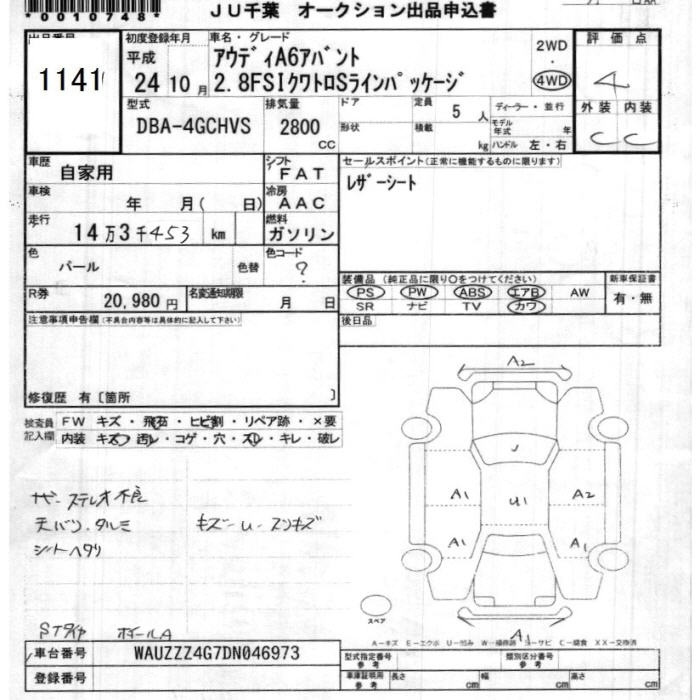 *0010748*
JU千葉 オークション出品申込書
出品番号
初度登録年月
車名・グレード
評価点
1141
平成
24 10 月
アウディA6アバント
2.8FSIクワトロSラインパッケージ
2WD
4WD
4
外装 内装
C C
型式
DBA-4GCHVS
排気量
2800
CC
ドア
形状
定員
5 人
積載
kg
ディーラー・並行
モデル
年式
年
ハンドル 左・右
車歴
自家用
シフト
FAT
セールスポイント(正常に機能するものに限ります)
レザーシート
車検
年 月( 日)
冷房
AAC
走行
14万3千453 km
燃料
ガソリン
色
パール
色替
色コード
?
R券
20,980 円
名変通知期限
月 日
装備品(純正品に限り○をつけてください)
PS PW ABS エアB AW
SR ナビ TV カワ
新車保証書
有・無
注意事項申告欄(不具合内容等は具体的に記入して下さい)
後日品
修復歴 有〔箇所 〕
検査員
記入欄
FW キズ・飛石・ヒビ割・リペア跡・×要
内装 キズ・汚レ・コゲ・穴・スレ・キレ・破レ
A2
J
A1
U1
A2
A1
A1
A1
ステレオ不良
天バリ・タルミ
キズーU・スリキズ
シートヘタリ
スペア
STタイヤ ホイールA
A-キズ E-エクボ U-凹み W-補修跡 S-サビ C-腐食 XX-交換済
車台番号
WAUZZZ4G7DN046973
登録番号
型式指定番号
参考
類別区分番号
参考
車庫証明用
参考
長さ
cm
幅
cm
高さ
cm